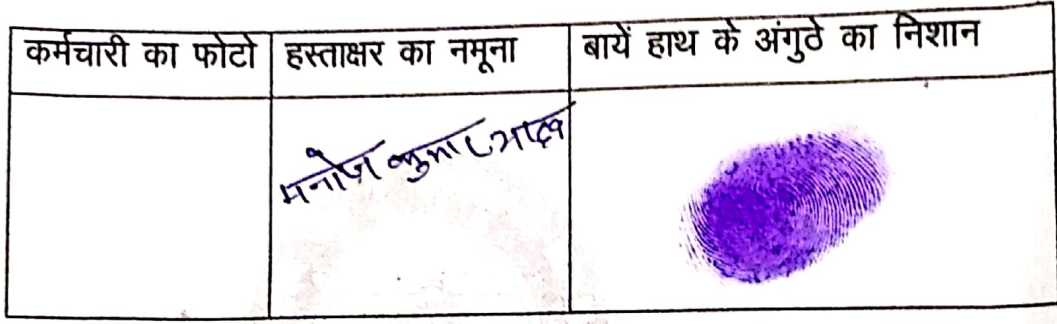 कर्मचारी का फोटो हस्ताक्षर का नमूना बायें हाथ के अंगुठे का निशान
मनोज कुमार